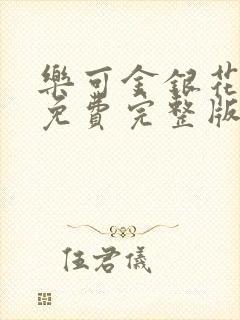 樂可金銀花
免費完整版
伍君儀